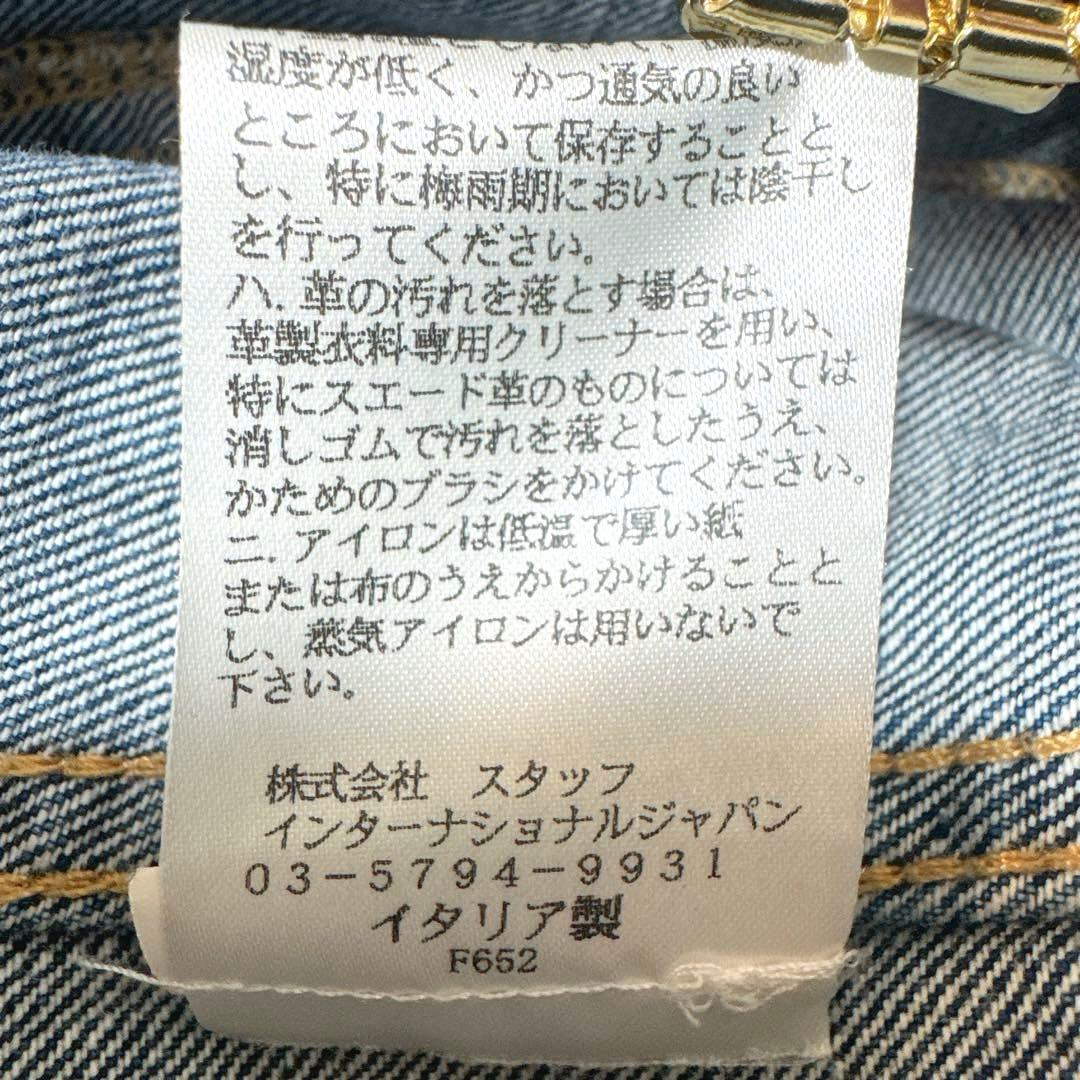 湿度が低く、かつ通気の良い
ところにおいて保存することと
し、特に梅雨期においては陰干し
を行ってください。
ハ.革の汚れを落とす場合は、
革製衣料専用クリーナーを用い、
特にスエード革のものについては
消しゴムで汚れを落としたうえ、
かためのブラシをかけてください。
ニ.アイロンは低温で厚い紙
または布のうえからかけることと
し、蒸気アイロンは用いないで
下さい。
株式会社 スタッフ
インターナショナルジャパン
03-5794-9931
イタリア製
F652